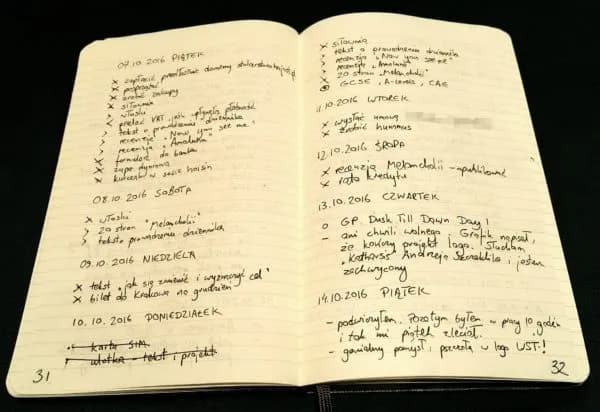 07.10.2016 PIĄTEK
x zapłacić przedłużenie domeny
x poprawki
x zrobić zakupy
x siłownia
x włoski
> przelać VAT, jak wpłyną płatności
> tekst o prowadzeniu dziennika
> recenzja "Now you see me"
> recenzja "Amoluka"
x formalność do banku
x zupa dyniowa
x kurczak w sosie hoisin
08.10.2016 SOBOTA
x włoski
> 20 stron "Melancholii"
> tekst o prowadzeniu dziennika
09.10.2016 NIEDZIELA
x tekst "jak się zmienić i wyznaczyć cel"
x bilet do Krakowa na grudzień
10.10.2016 PONIEDZIAŁEK
karta SIM
ulotka - tekst i projekt
31
x siłownia
x tekst o prowadzeniu dziennika
x recenzja "Now you see me"
x recenzja
x 20 stron "Melancholii"
GCSE, A-levels, CAE
11.10.2016 WTOREK
x wysłać umowę
x zrobić hummus
12.10.2016 ŚRODA
x recenzja Melancholii - opublikować
x rata kredytu
13.10.2016 CZWARTEK
o GP. Dusk Till Dawn Day!
- ani chwili wolnego, Grafik napisał,
że kończy projekt loga. Słucham
"Katharsis" Andrzeja i jestem
zachwycony
14.10.2016 PIĄTEK
- podwieczorek. Pozatym byłem w pracy 10 godzin
i tak mi piątek zleciał.
- genialny pomysł, pszczoła w logo UST!
32